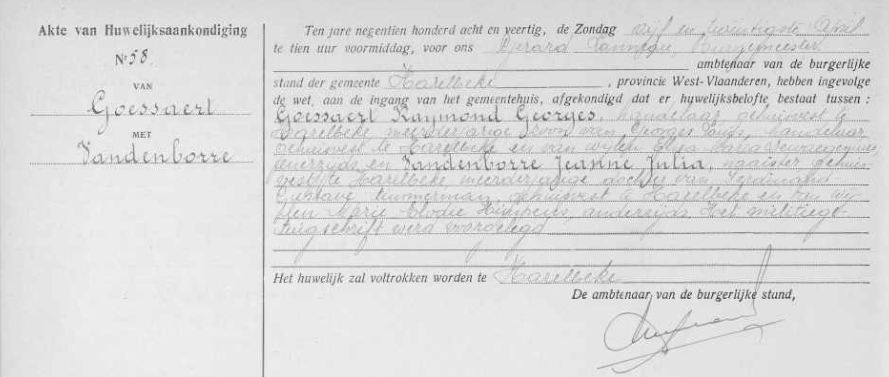 Akte van Huwelijksaankondiging
No 58.
VAN
Goessaert
MET
Vandenborre
Ten jare negentien honderd acht en veertig, de Zondag vijf en twintigste April
te tien uur voormiddag, voor ons Gerard Burgemeester
ambtenaar van de burgerlijke
stand der gemeente Harelbeke, provincie West-Vlaanderen, hebben ingevolge
de wet, aan de ingang van het gemeentehuis, afgekondigd dat er huwelijksbelofte bestaat tussen :
Goessaert Raymond Georges, handelaar gehuisvest te
Harelbeke meerderjarige zoon van Georges handelaar
gehuisvest te Harelbeke en van wijlen Maria
enerzijds en Vandenborre Jeanne Julia, naaister gehuis-
vest te Harelbeke meerderjarige dochter van Ferdinand
Gustave timmerman, gehuisvest te Harelbeke en van wij-
len Marie Elodie anderzijds. Het militiege-
tuigschrift werd voorgelegd
Het huwelijk zal voltrokken worden te Harelbeke
De ambtenaar van de burgerlijke stand,